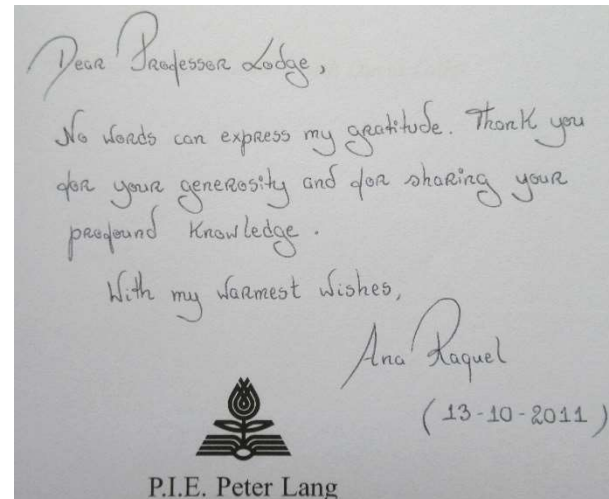 Dear Professor Lodge,
No words can express my gratitude. Thank you
for your generosity and for sharing your
profound knowledge.
With my warmest wishes,
Ana Raquel
(13-10-2011)
P.I.E. Peter Lang